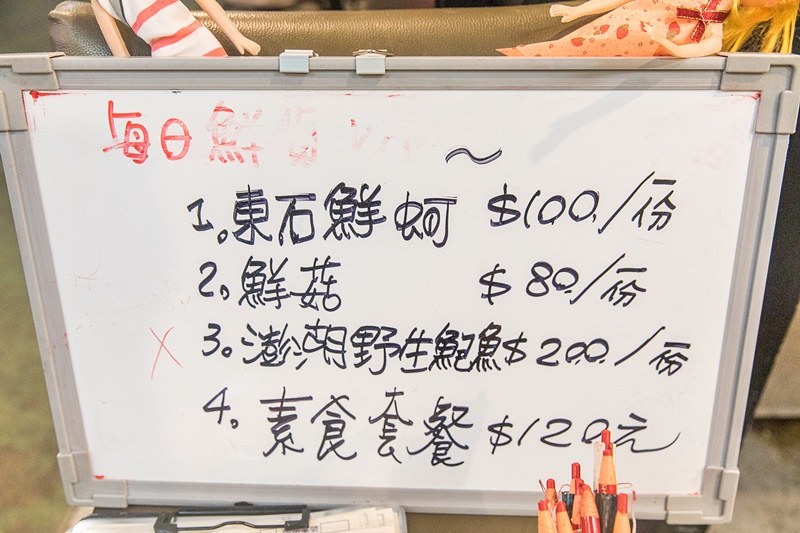 每日鮮
~
1。東石鮮蚵 $100./一份
2。鮮菇 $80/一份
X 3。澎湖野生鮑魚$200./一份
4。素食套餐$120元